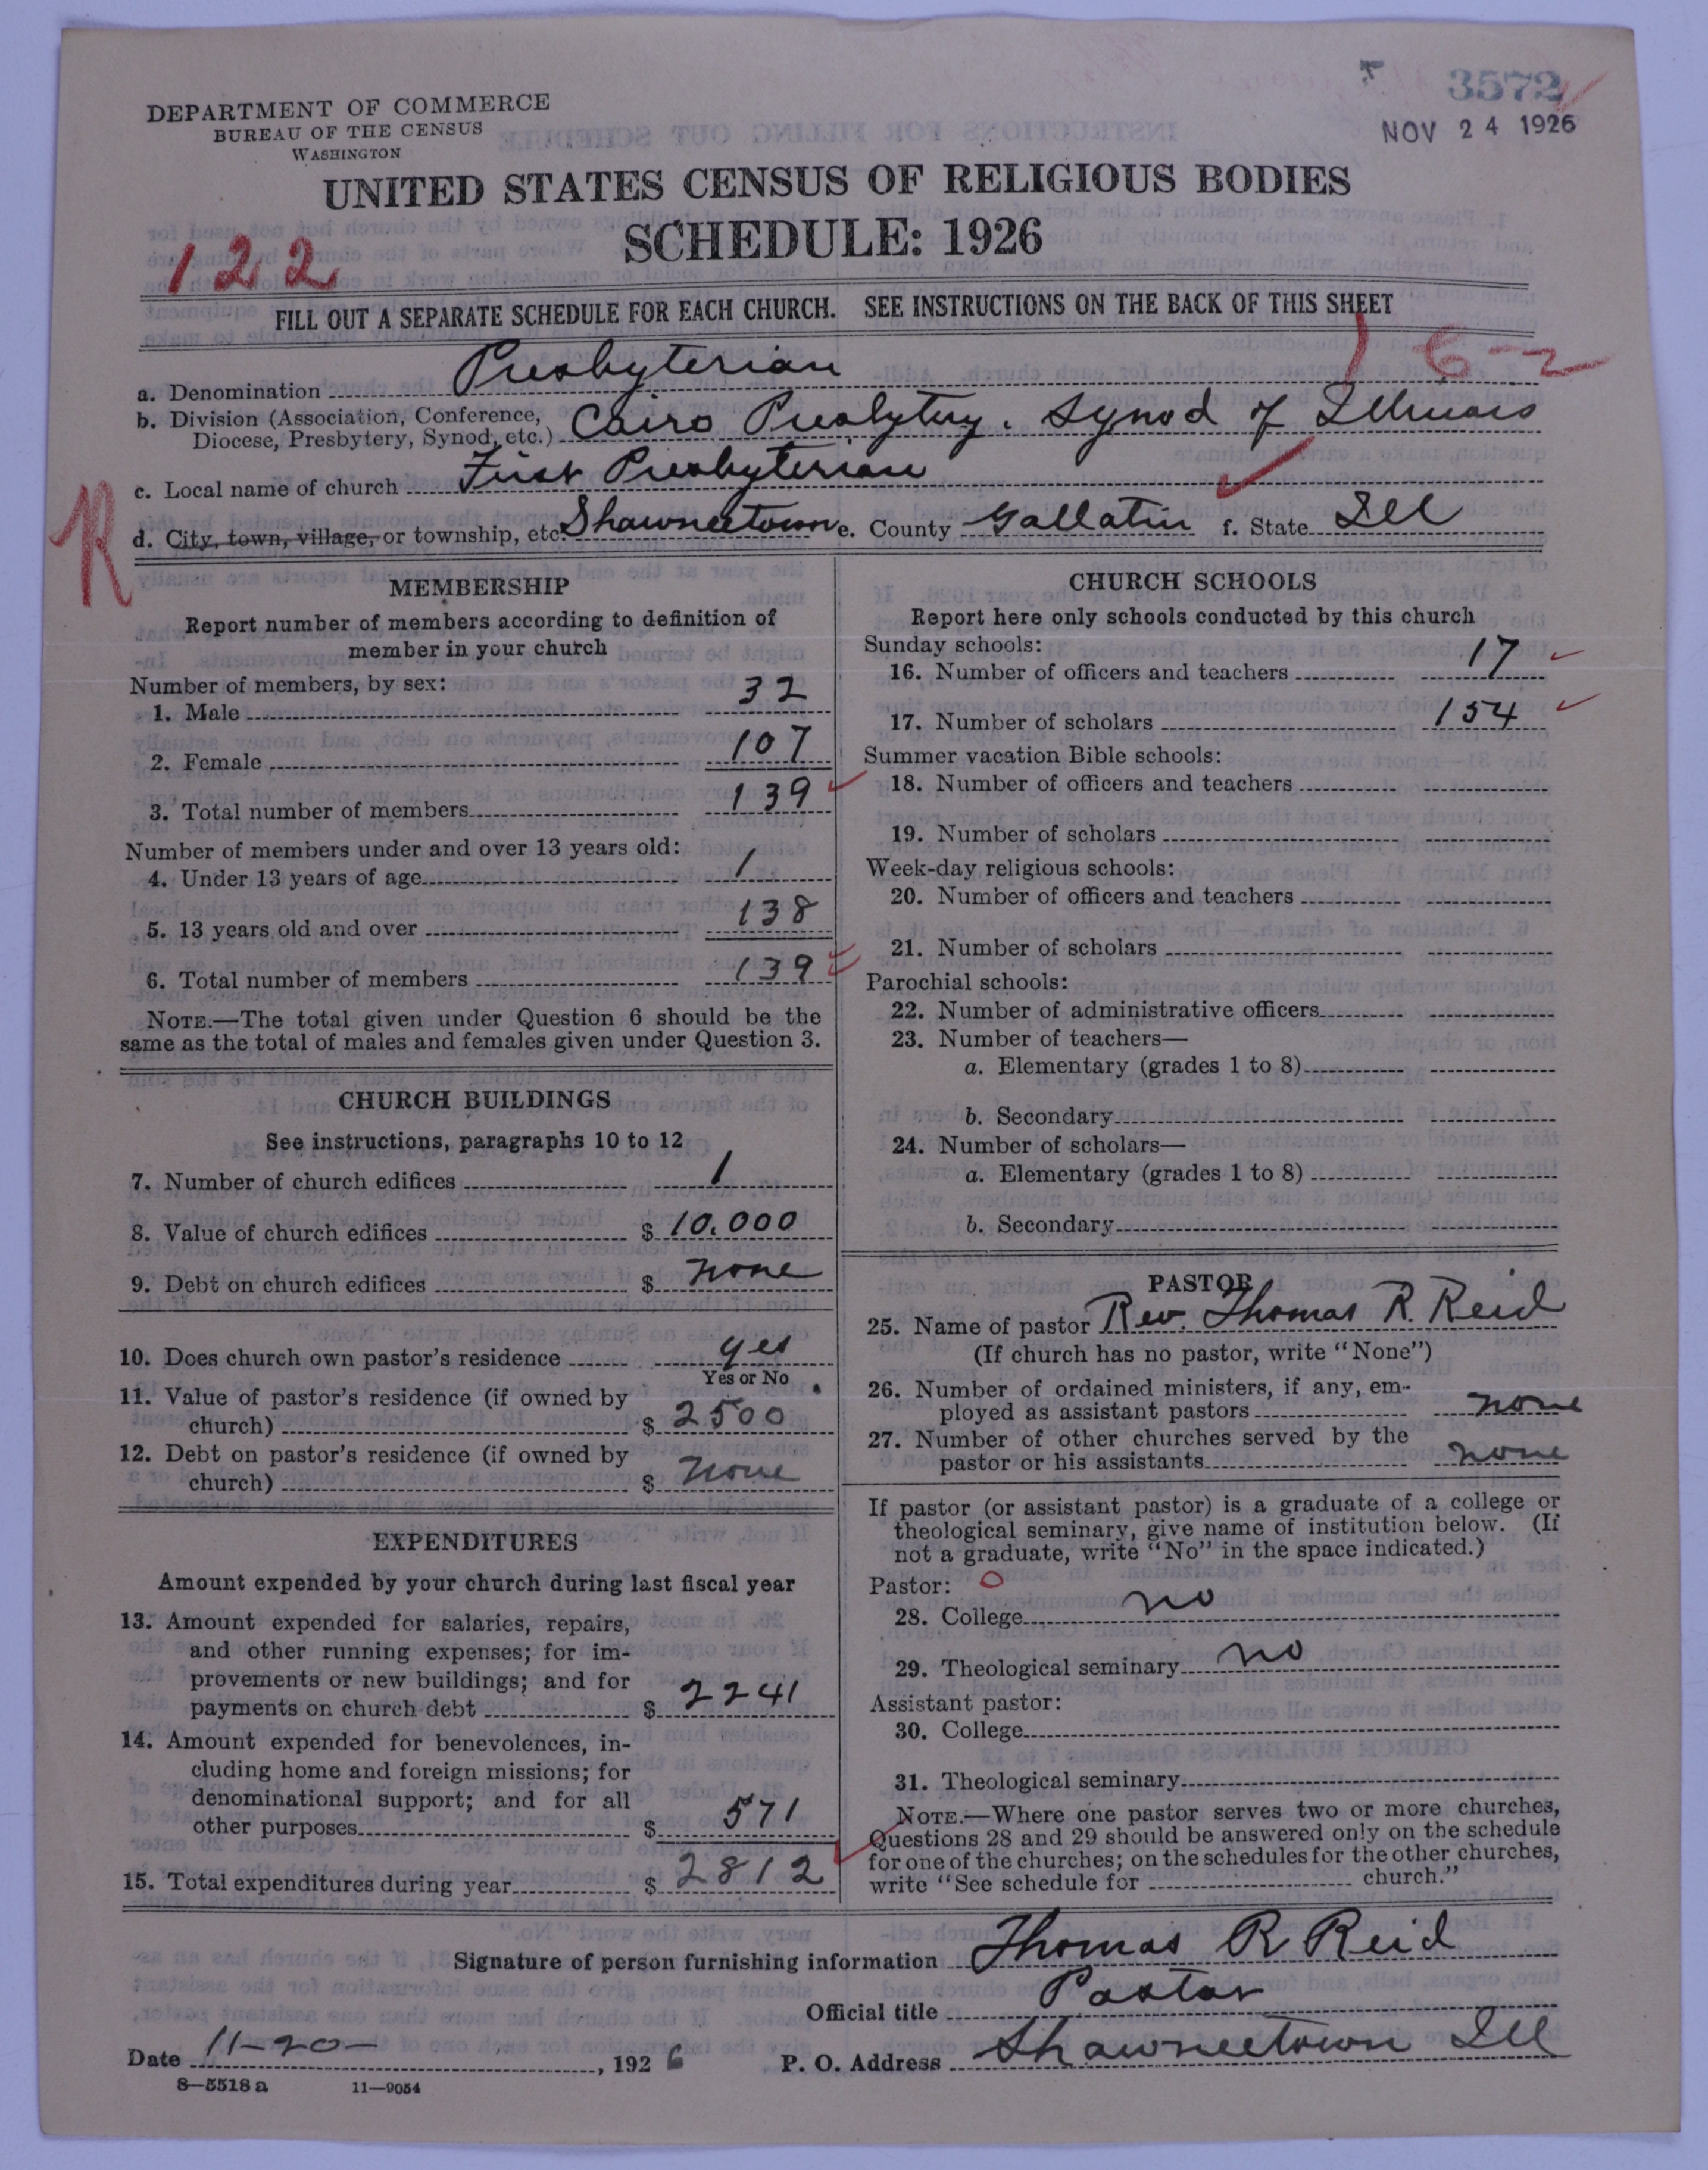 3572
NOV 24 1926
DEPARTMENT OF COMMERCE
BUREAU OF THE CENSUS
WASHINGTON
UNITED STATES CENSUS OF RELIGIOUS BODIES
SCHEDULE: 1926
122
FILL OUT A SEPARATE SCHEDULE FOR EACH CHURCH. SEE INSTRUCTIONS ON THE BACK OF THIS SHEET
a. Denomination Presbyterian
b. Division (Association, Conference, Diocese, Presbytery, Synod, etc.) Cairo Presbytery. Synod of Illinois
c. Local name of church First Presbyterian
R
d. City, town, village, or township, etc. Shawneetown e. County Gallatin f. State Ill
MEMBERSHIP
Report number of members according to definition of
member in your church
Number of members, by sex:
1. Male 32
2. Female 107
3. Total number of members 139
Number of members under and over 13 years old:
4. Under 13 years of age 1
5. 13 years old and over 138
6. Total number of members 139
NOTE.—The total given under Question 6 should be the
same as the total of males and females given under Question 3.
CHURCH BUILDINGS
See instructions, paragraphs 10 to 12
7. Number of church edifices 1
8. Value of church edifices $ 10.000
9. Debt on church edifices $ none
10. Does church own pastor's residence yes
Yes or No
11. Value of pastor's residence (if owned by
church) $ 2500
12. Debt on pastor's residence (if owned by
church) $ none
EXPENDITURES
Amount expended by your church during last fiscal year
13. Amount expended for salaries, repairs,
and other running expenses; for im-
provements or new buildings; and for
payments on church debt $ 2241
14. Amount expended for benevolences, in-
cluding home and foreign missions; for
denominational support; and for all
other purposes $ 571
15. Total expenditures during year $ 2812
CHURCH SCHOOLS
Report here only schools conducted by this church
Sunday schools:
16. Number of officers and teachers 17
17. Number of scholars 154
Summer vacation Bible schools:
18. Number of officers and teachers
19. Number of scholars
Week-day religious schools:
20. Number of officers and teachers
21. Number of scholars
Parochial schools:
22. Number of administrative officers
23. Number of teachers—
a. Elementary (grades 1 to 8)
b. Secondary
24. Number of scholars—
a. Elementary (grades 1 to 8)
b. Secondary
PASTOR
25. Name of pastor Rev. Thomas R. Reid
(If church has no pastor, write "None")
26. Number of ordained ministers, if any, em-
ployed as assistant pastors none
27. Number of other churches served by the
pastor or his assistants none
If pastor (or assistant pastor) is a graduate of a college or
theological seminary, give name of institution below. (If
not a graduate, write "No" in the space indicated.)
Pastor:
28. College no
29. Theological seminary no
Assistant pastor:
30. College
31. Theological seminary
NOTE.—Where one pastor serves two or more churches,
Questions 28 and 29 should be answered only on the schedule
for one of the churches; on the schedules for the other churches,
write "See schedule for church."
Signature of person furnishing information Thomas R Reid
Official title Pastor
Date 11-20- , 1926 P. O. Address Shawneetown Ill
8—5518a 11—9054